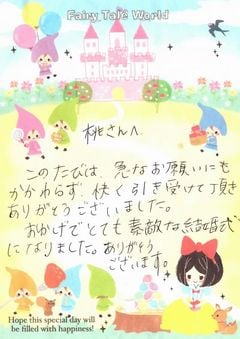 Fairy Tale World
桃さんへ
このたびは、急なお願いにも
かかわらず、快く引き受けて頂き
ありがとうございました。
おかげでとても素敵な結婚式
になりました。ありがとう
ございます。
Hope this special day will
be filled with happiness!